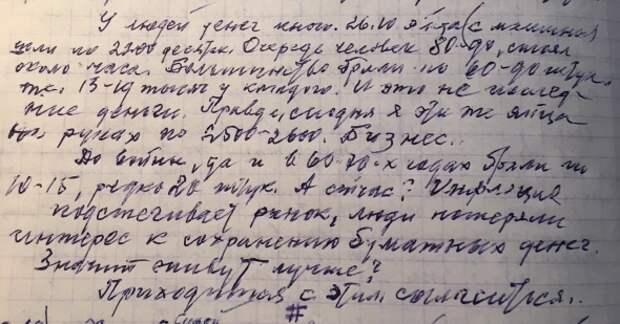 У людей денег много. 26.10 яйца (с машины)
шли по 2200 десяток. Очередь человек 80-90, стоял
около часа. Большинство брали по 60-90 штук,
т.е. 13-19 тысяч у каждого. И это не послед-
ние деньги. Правда, сегодня я эти же яйца
на руках по 2500-2600. Бизнес..
До войны, да и в 60-70-х годах брали по
10-15, редко 20 штук. А сейчас? Инфляция
подстегивает рынок, люди потеряли
интерес к сохранению бумажных денег.
Значит живут лучше?
Приходится с этим согласиться..
#